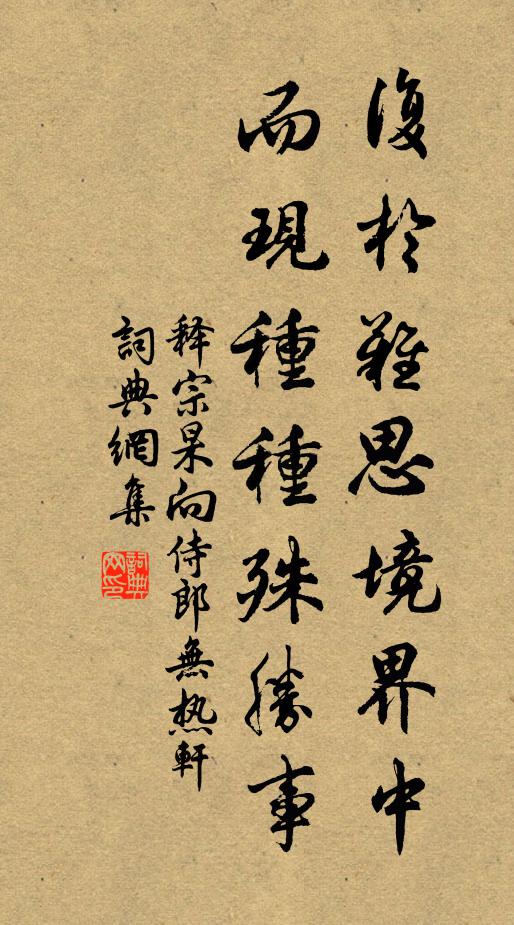 復於難思境界中
而現種種殊勝事
释宗杲向侍郎無热軒
詞典網集
詞典網印